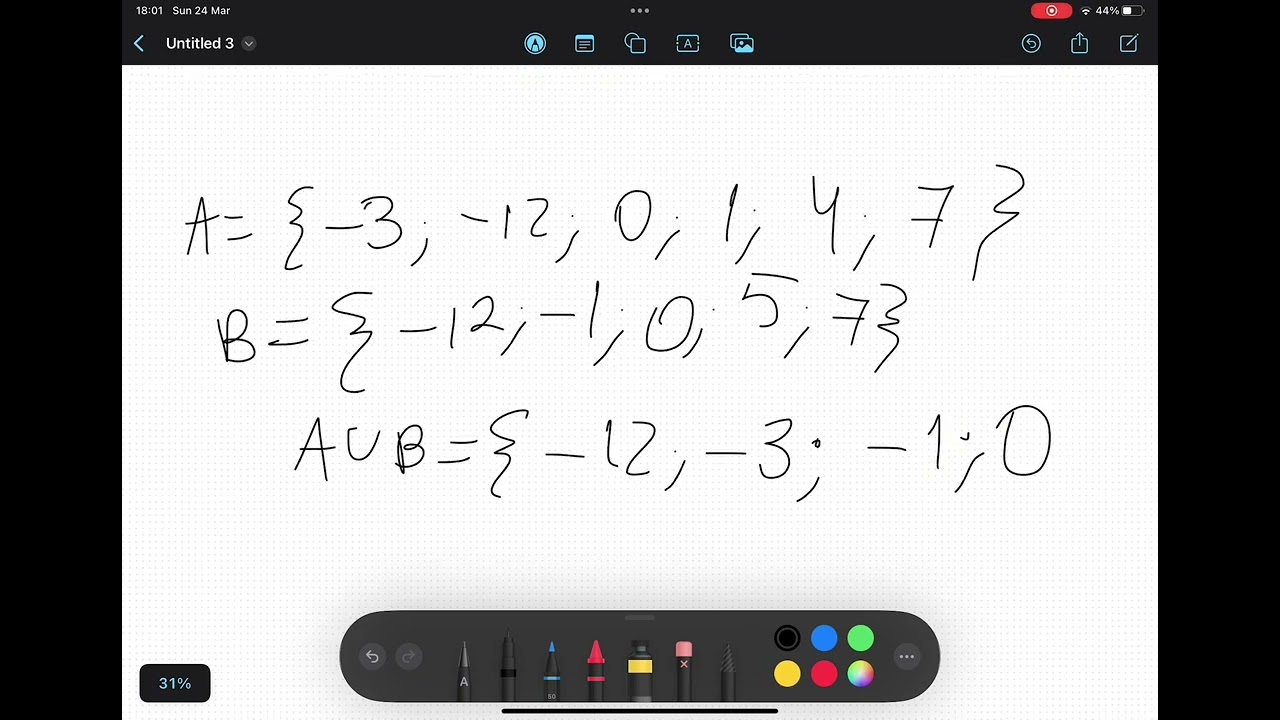 18:01 Sun 24 Mar 44%
Untitled 3
A
A = {-3; -12; 0; 1; 4; 7}
B = {-12; -1; 0; 5; 7}
A∪B = {-12; -3; -1; 0
A
50
31%